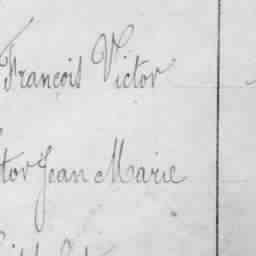 François Victor
tor Jean Marie